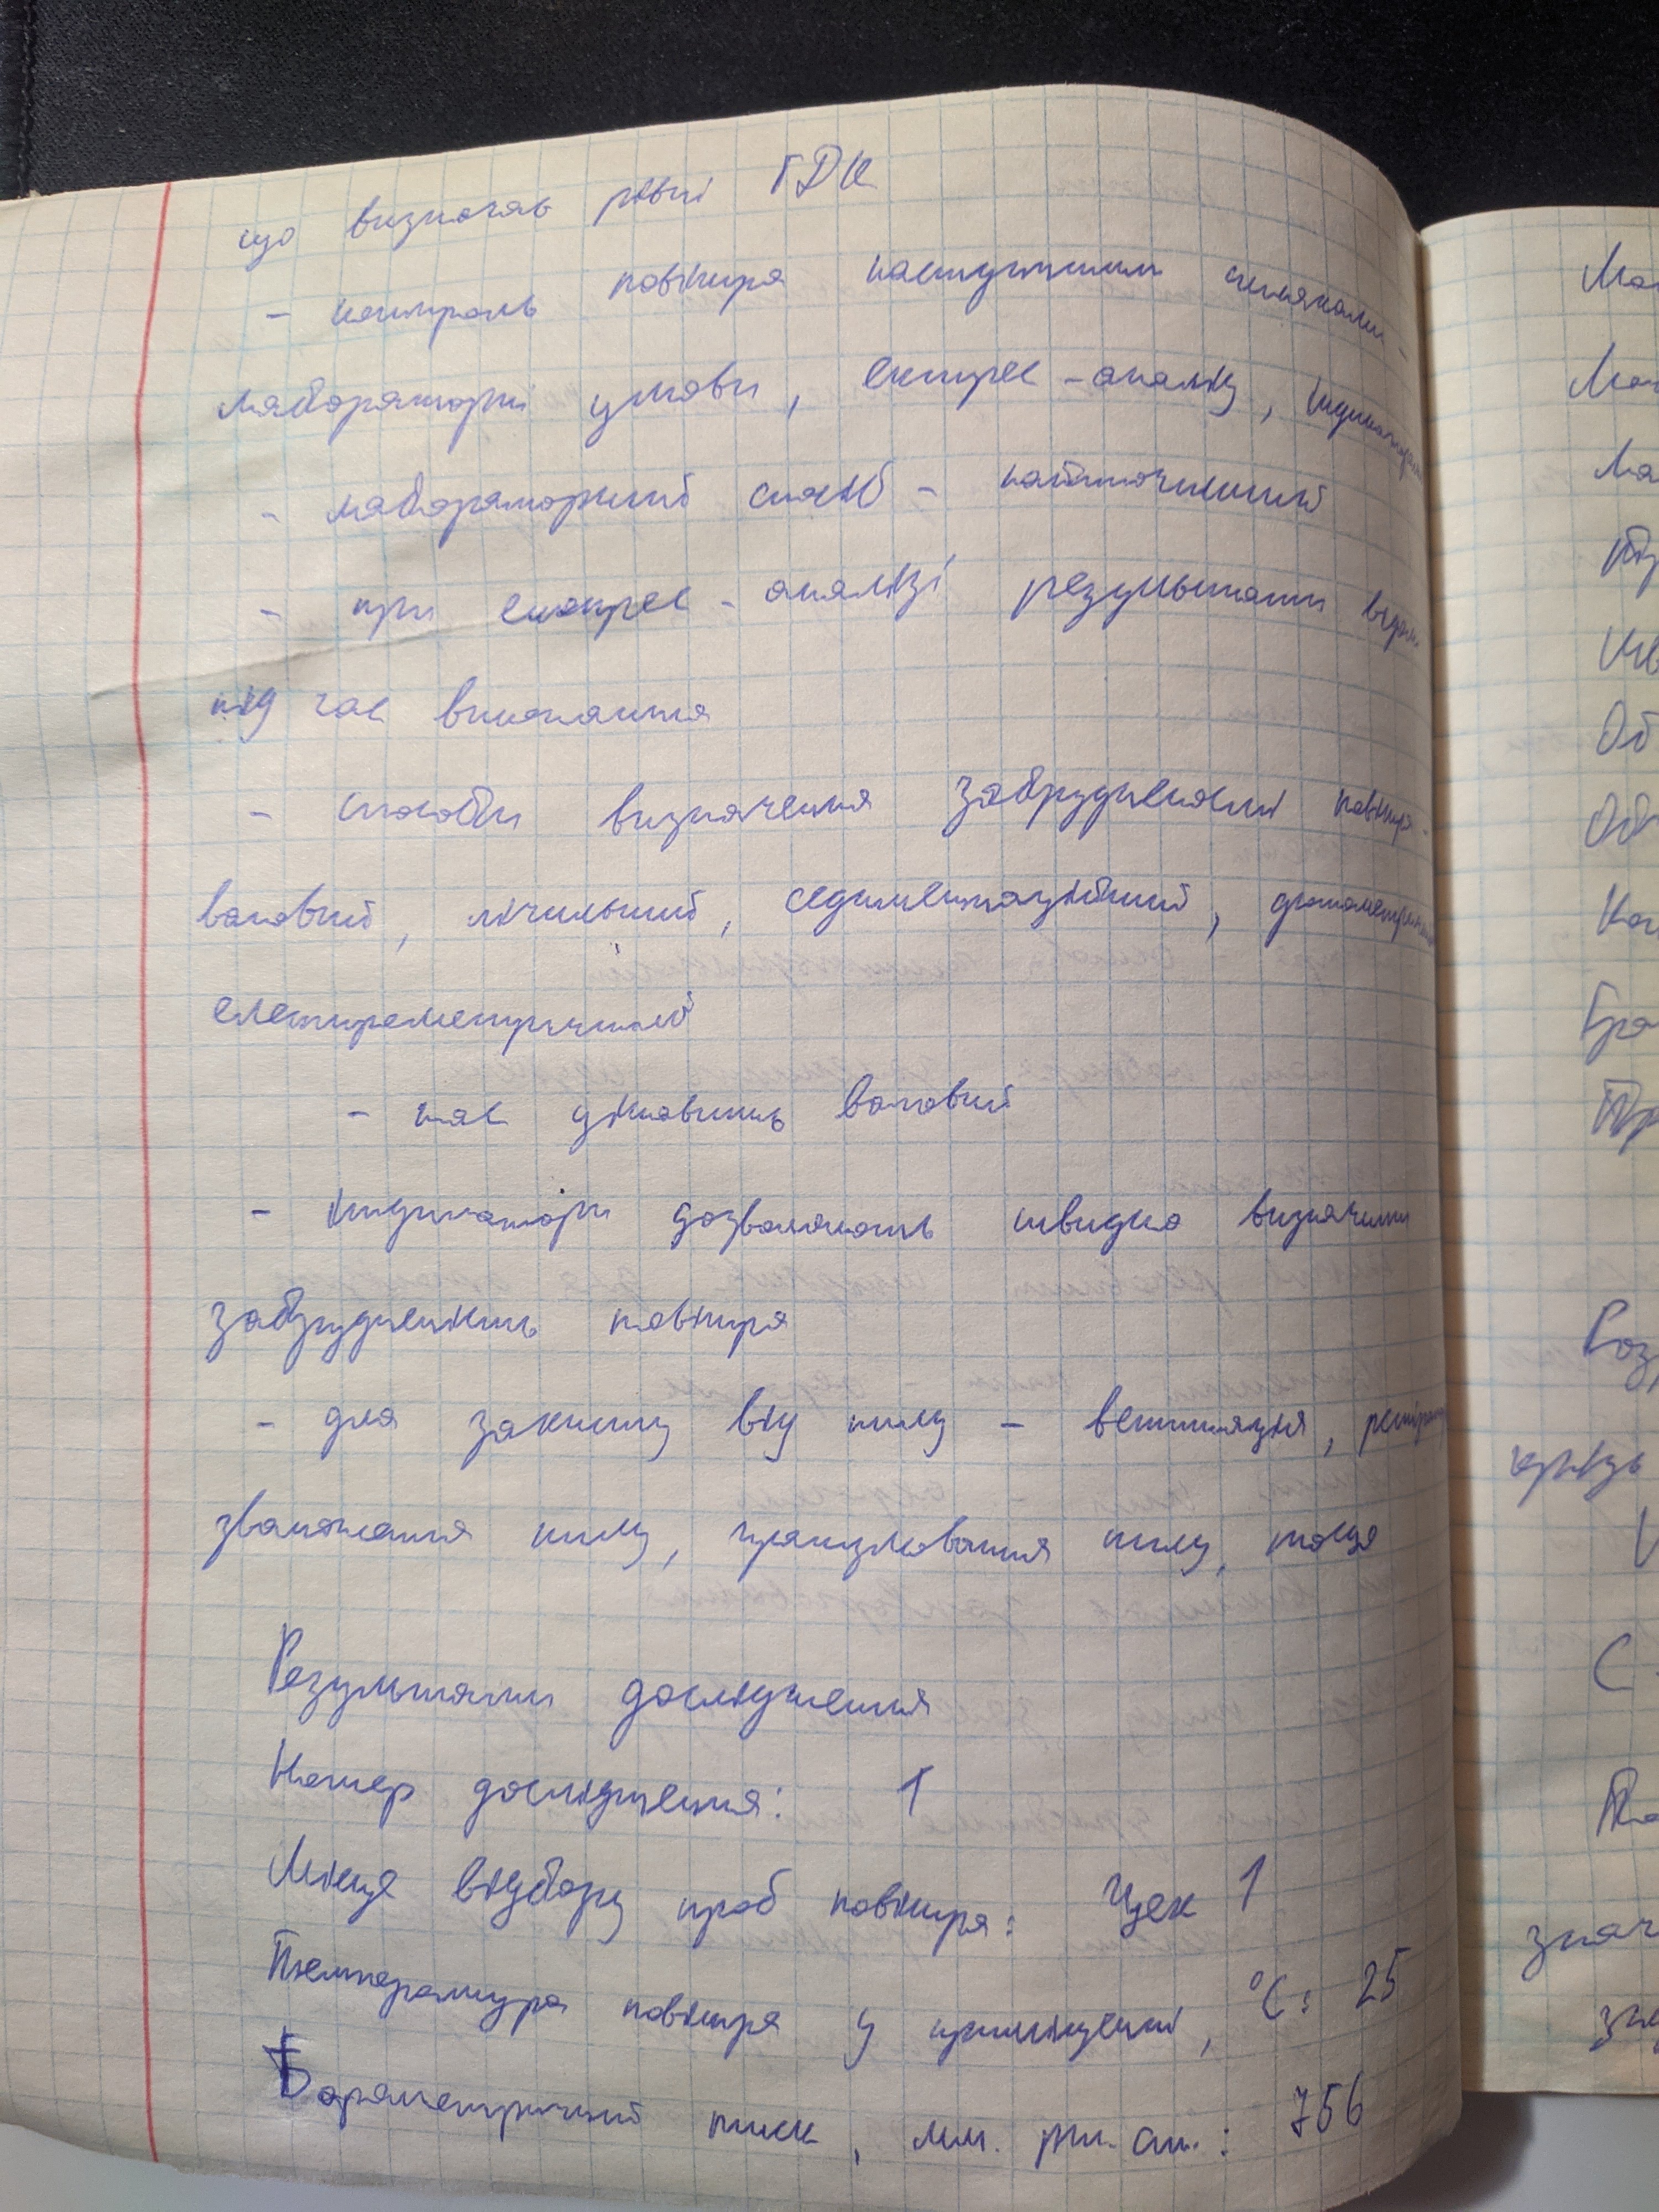 що визначає рівні ГДК
- контроль повітря наступними шляхами -
лабораторні умови, експрес-аналіз, індикатори
- лабораторний спосіб - найточніший
- при експрес-аналізі результати відомі
під час виконання
- способи визначення забрудненості повітря -
ваговий, лічильний, седиментаційний, фотометричний
електрометричний
- нас цікавить ваговий
- індикатори дозволяють швидко визначити
забрудненість повітря
- для захисту від пилу - вентиляція,
зволоження пилу, гранулювання пилу, тощо
Результати дослідження
Номер дослідження: 1
Місце відбору проб повітря: Цех 1
Температура повітря у приміщенні, °С: 25
Барометричний тиск, мм. рт. ст.: 756
Об
Про
С
V